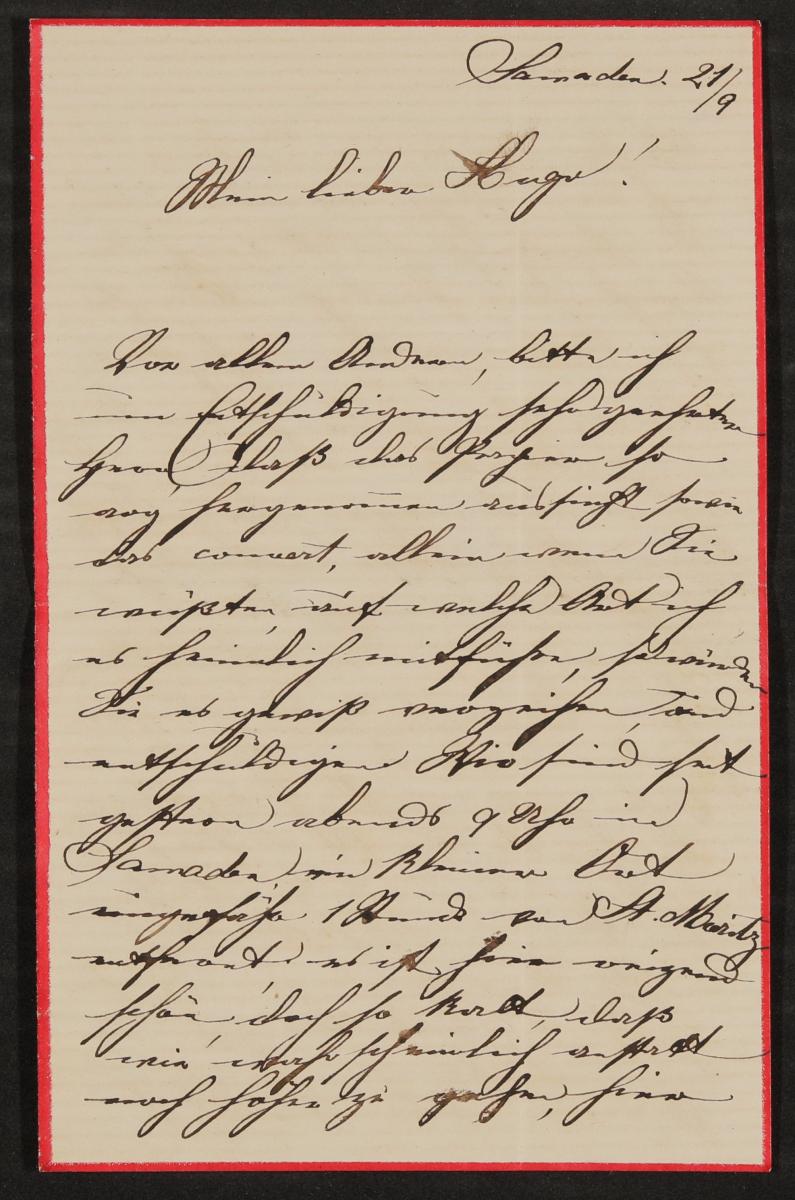 Samaden. 21/9
Mein lieber Hugo!
Vor allem Andern, bitte ich
um Entschuldigung sehr geehrter
Herr, daß das Papier so
arg hergenommen aussieht sowie
das couvert, allein wenn Sie
wüßten, auf welche Art ich
es heimlich mitführe, so würden
Sie es gewiß verzeihen, und
entschuldigen Wir sind seit
gestern abends 9 Uhr in
Samaden ein kleiner Ort
ungefähr 1 Stunde von St. Moritz
entfernt es ist hier reizend
schön, doch so kalt, daß
wir wahrscheinlich anstatt
noch höher zu gehen, hier